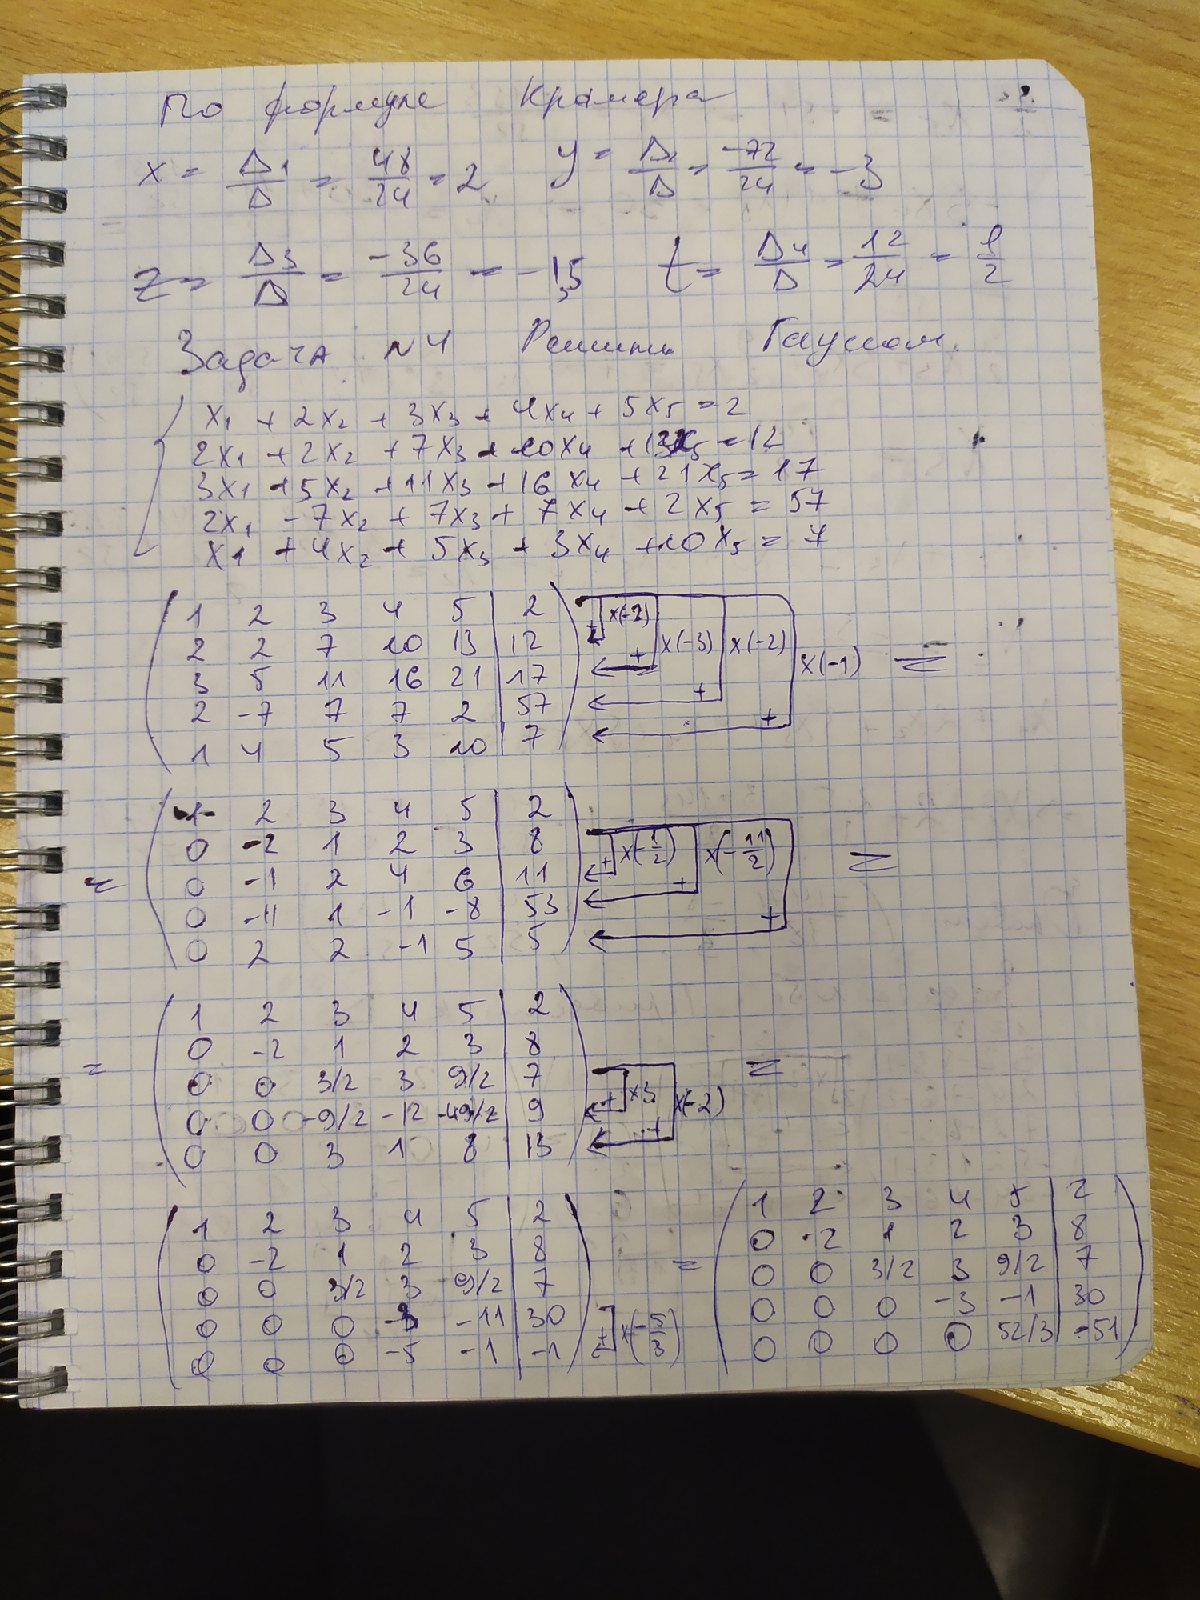 По формуле Крамера
x = Δ1/Δ = 48/24 = 2 y = Δ2/Δ = -72/24 = -3
z = Δ3/Δ = -36/24 = -1,5 t = Δ4/Δ = 12/24 = 1/2
Задача №4 Решить Гауссом.
x1 + 2x2 + 3x3 + 4x4 + 5x5 = 2
2x1 + 2x2 + 7x3 + 10x4 + 13x5 = 12
3x1 + 5x2 + 11x3 + 16x4 + 21x5 = 17
2x1 - 7x2 + 7x3 + 7x4 + 2x5 = 57
x1 + 4x2 + 5x3 + 3x4 + 10x5 = 7
1 2 3 4 5 | 2 x(-2) x(-3) x(-2) x(-1) =
2 2 7 10 13 | 12 +
3 5 11 16 21 | 17 +
2 -7 7 7 2 | 57 +
1 4 5 3 10 | 7 +
1 2 3 4 5 | 2
0 -2 1 2 3 | 8 x(-1/2) x(-11/2) =
= 0 -1 2 4 6 | 11 +
0 -11 1 -1 -8 | 53 +
0 2 2 -1 5 | 5 +
1 2 3 4 5 | 2
0 -2 1 2 3 | 8
= 0 0 3/2 3 9/2 | 7 x3 x(-2) =
0 0 -9/2 -12 -49/2 | 9 +
0 0 3 1 8 | 13 +
1 2 3 4 5 | 2
0 -2 1 2 3 | 8
0 0 3/2 3 9/2 | 7
0 0 0 -3 -11 | 30 x(-5/3)
0 0 0 -5 -1 | -1 +
1 2 3 4 5 | 2
0 -2 1 2 3 | 8
= 0 0 3/2 3 9/2 | 7
0 0 0 -3 -1 | 30
0 0 0 0 52/3 | -51